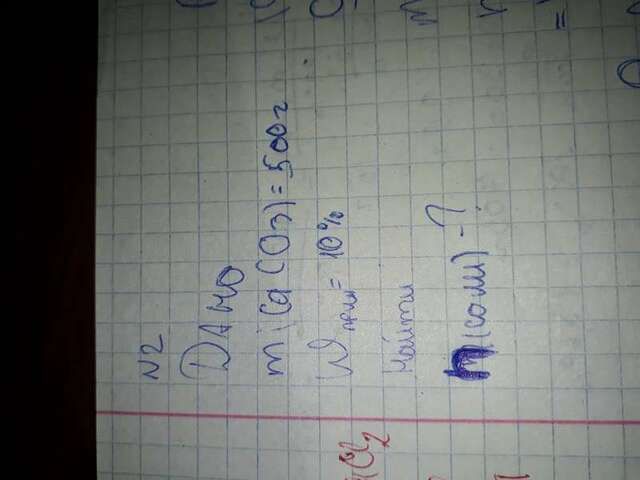 N2
Дано
m(CaCO3)=500г
Wприм=10%
Найти
n(соли)-?
Cl2